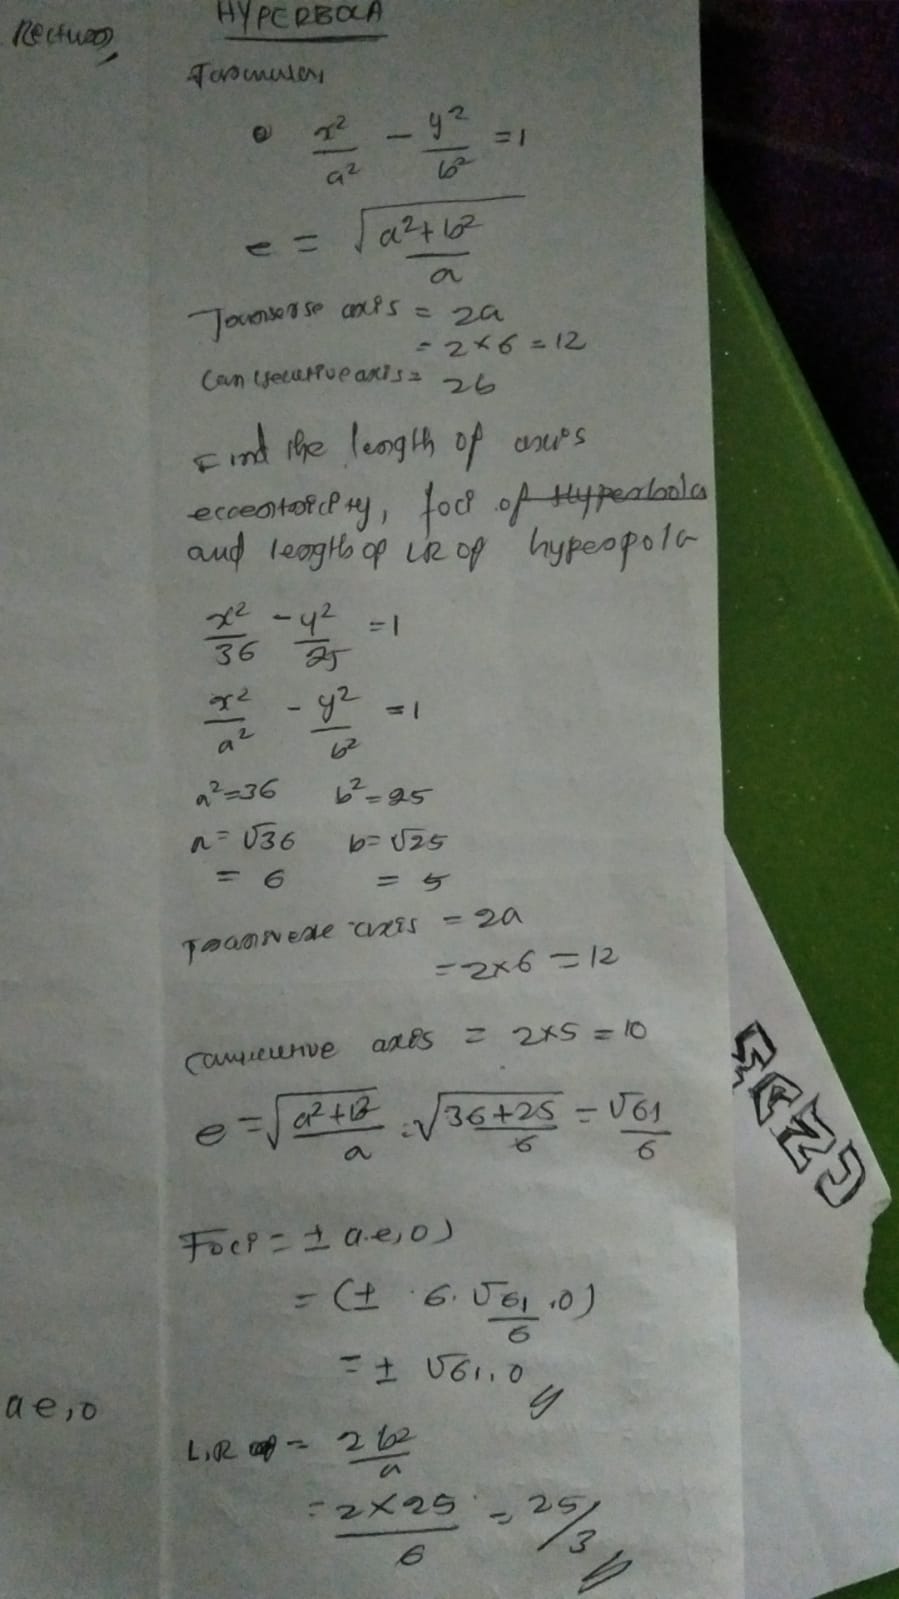 HYPERBOLA
Formulas
x²/a² - y²/b² = 1
e = √a²+b²/a
Transverse axis = 2a
= 2×6 = 12
axis = 2b
Find the length of axis
eccentricity, foci of Hyperbola
and length of LR of hyperpola
x²/36 - y²/25 = 1
x²/a² - y²/b² = 1
a²=36 b²=25
a=√36 b=√25
= 6 = 5
Transverse axis = 2a
= 2×6 = 12
axis = 2×5 = 10
e = √a²+b²/a = √36+25/6 = √61/6
Foci = ± a.e,0)
= (± 6.√61/6 ,0)
= ± √61,0
ae,0
L.R = 2b²/a
= 2×25/6 = 25/3